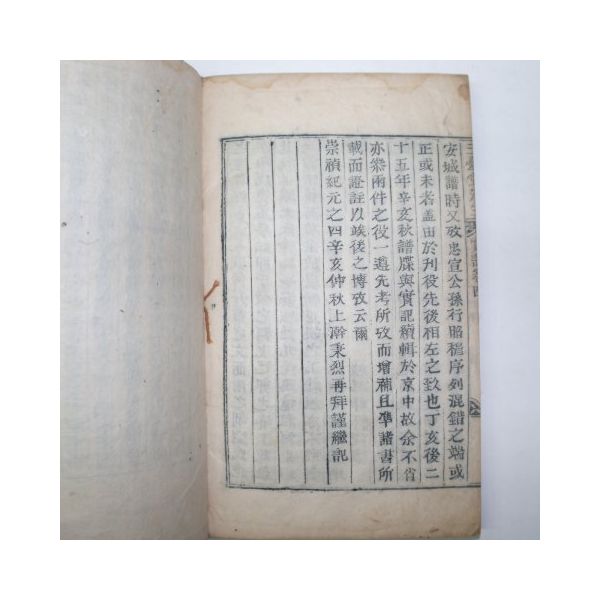 實記卷四
安城譜時又攷忠宣公孫行昭穆序列混錯之端或
正或未者盖由於刋役先後相左之致也丁亥後二
十五年辛亥秋譜牒與實記續輯於京中故余不肖
亦叅兩件之役一遵先考所攷而增補且準諸書所
載而證註以竢後之博攷云爾
崇禎紀元之四辛亥仲秋上澣秉烈再拜謹繼記